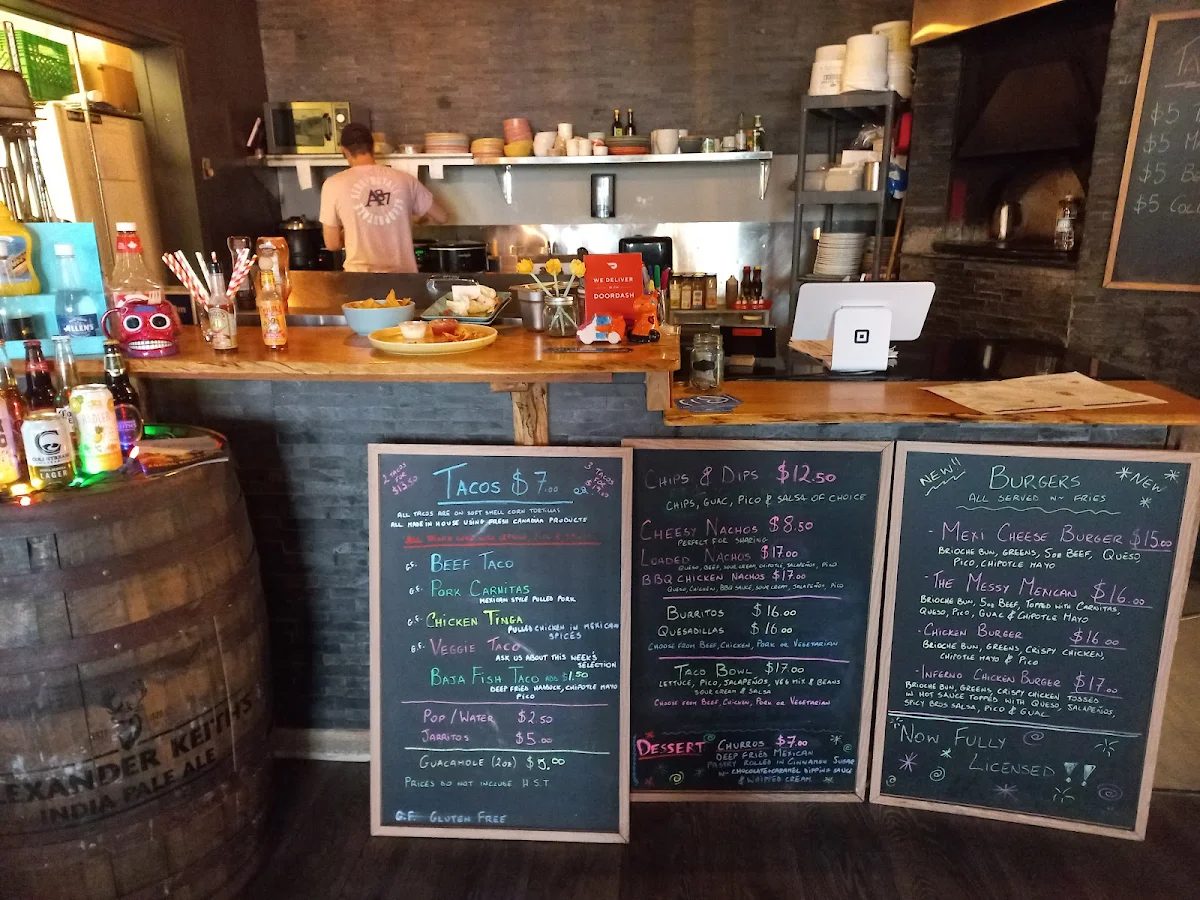 WE DELIVER
DOORDASH
ALLEN'S
LAGER
ALEXANDER KEITH'S
INDIA PALE ALE
TACOS $7.00
2 TACOS
FOR
$13.50
3 TACOS
FOR
ALL TACOS ARE ON SOFT SHELL CORN TORTILLAS
ALL MADE IN HOUSE USING FRESH CANADIAN PRODUCTS
G.F. BEEF TACO
G.F. PORK CARNITAS
MEXICAN STYLE PULLED PORK
G.F. CHICKEN TINGA
PULLED CHICKEN IN MEXICAN
SPICES
G.F. VEGGIE TACO
ASK US ABOUT THIS WEEK'S
SELECTION
BAJA FISH TACO ADD $1.50
DEEP FRIED HADDOCK, CHIPOTLE MAYO
PICO
POP / WATER $2.50
JARRITOS $5.00
GUACAMOLE (2oz)
PRICES DO NOT INCLUDE H.S.T
G.F. GLUTEN FREE
CHIPS & DIPS $12.50
CHIPS, GUAC, PICO & SALSA OF CHOICE
CHEESY NACHOS $8.50
PERFECT FOR SHARING
LOADED NACHOS $17.00
QUESO, BEEF, SOUR CREAM, CHIPOTLE, JALAPEÑOS, PICO
BBQ CHICKEN NACHOS $17.00
QUESO, CHICKEN, BBQ SAUCE, SOUR CREAM, JALAPEÑOS, PICO
BURRITOS $16.00
QUESADILLAS $16.00
CHOOSE FROM BEEF, CHICKEN, PORK OR VEGETARIAN
TACO BOWL $17.00
LETTUCE, PICO, JALAPEÑOS, VEG MIX & BEANS
SOUR CREAM & SALSA
CHOOSE FROM BEEF, CHICKEN, PORK OR VEGETARIAN
DESSERT CHURROS $7.00
DEEP FRIED MEXICAN
PASTRY ROLLED IN CINNAMON SUGAR
W/ CHOCOLATE & CARAMEL DIPPING SAUCE
& WHIPPED CREAM
NEW!! BURGERS NEW
ALL SERVED W/ FRIES
- MEXI CHEESE BURGER $15.00
BRIOCHE BUN, GREENS, 5oz BEEF, QUESO,
PICO, CHIPOTLE MAYO
- THE MESSY MEXICAN $16.00
BRIOCHE BUN, 5oz BEEF, TOPPED WITH CARNITAS,
QUESO, PICO, GUAC & CHIPOTLE MAYO
- CHICKEN BURGER $16.00
BRIOCHE BUN, GREENS, CRISPY CHICKEN,
CHIPOTLE MAYO & PICO
- INFERNO CHICKEN BURGER $17.00
BRIOCHE BUN, GREENS, CRISPY CHICKEN TOSSED
IN HOT SAUCE TOPPED WITH QUESO, JALAPEÑOS,
SPICY BROS SALSA, PICO & GUAC
NOW FULLY
LICENSED!!
$5
$5
$5
$5